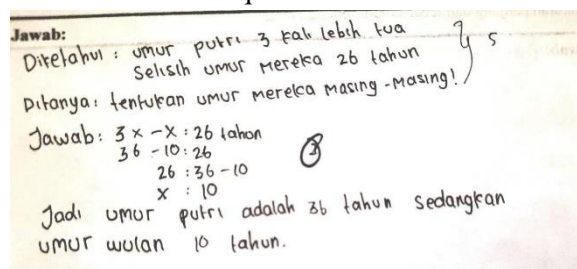 Jawab:
Diketahui : umur putri 3 kali lebih tua } 5
Selisih umur mereka 26 tahun
Ditanya : tentukan umur mereka masing-masing!
Jawab : 3x - x : 26 tahun
36 - 10 : 26
26 : 36 - 10
x : 10
Jadi umur putri adalah 36 tahun sedangkan
umur wulan 10 tahun.